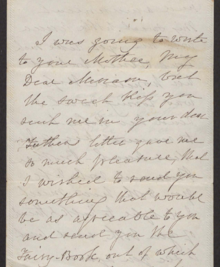 I was going to write
to your Mother, My
Dear Miriam, but
the sweet kiss you
sent me in your dear
Father's letter gave me
so much pleasure that
I wished to send you
something that would
be as agreeable to you
and send you the
Fairy-Book out of which